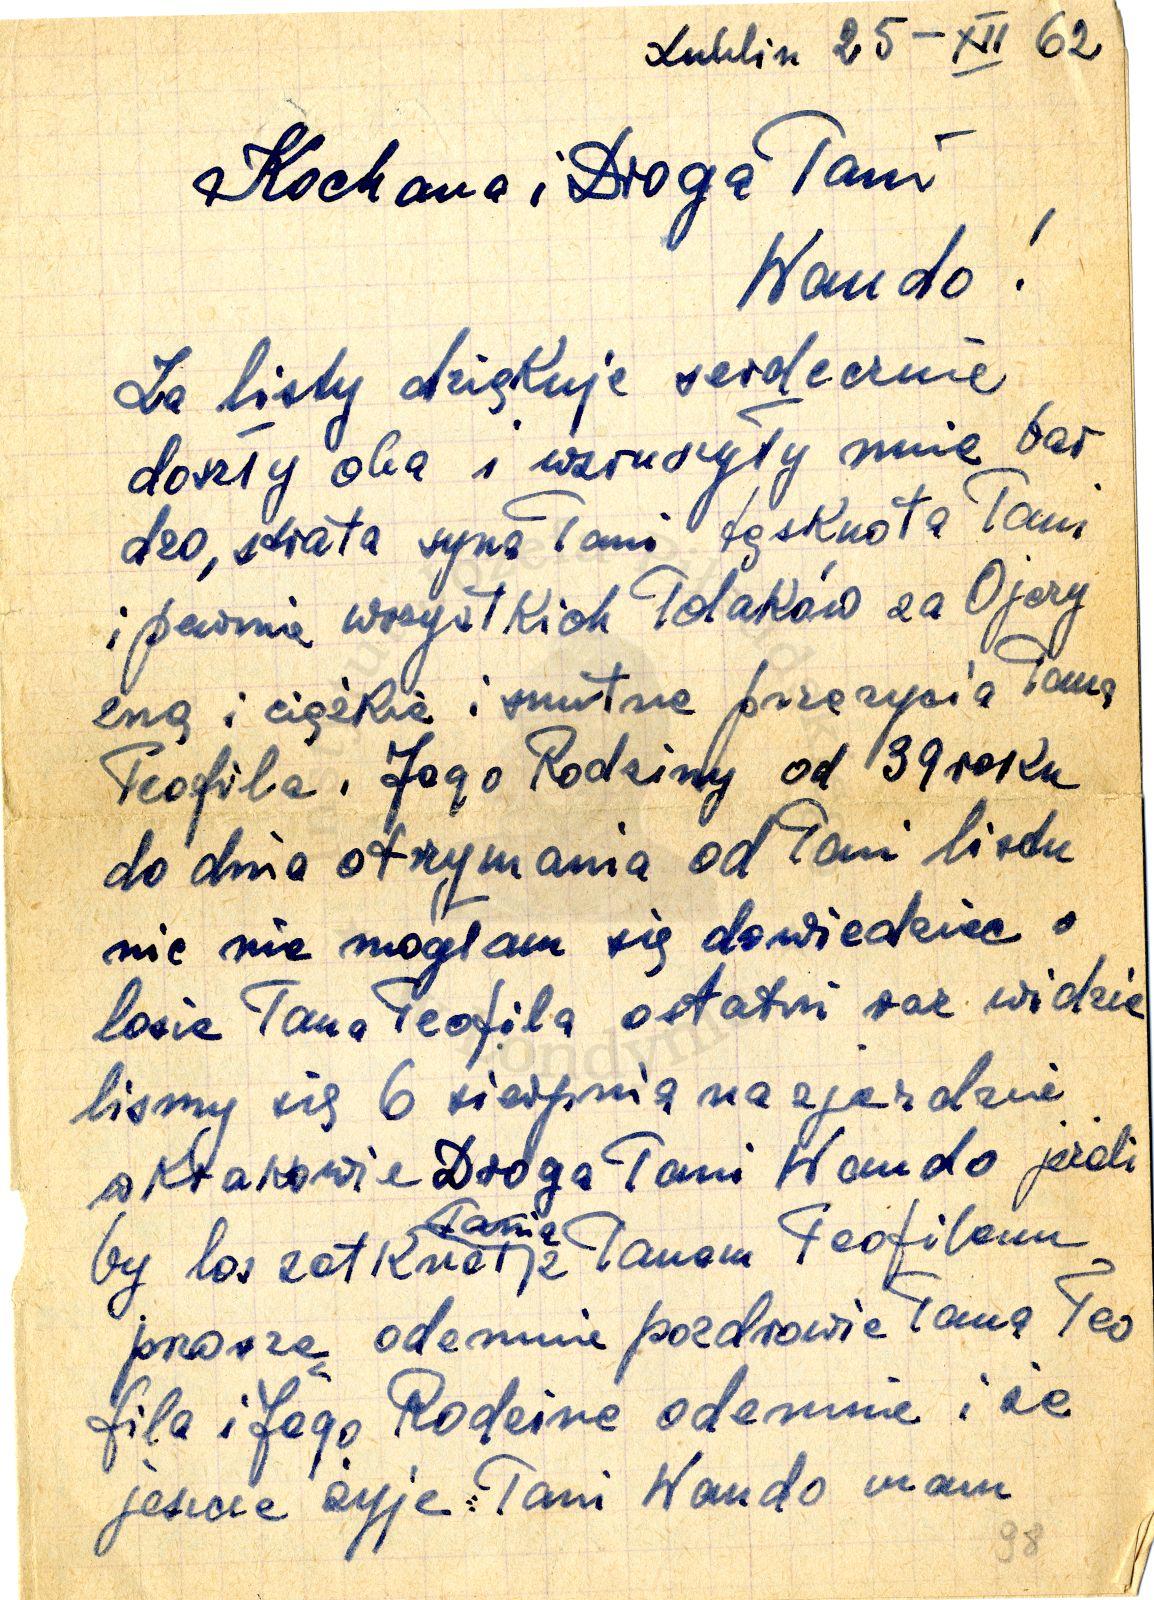 Lublin 25-XII 62
Kochana i Droga Pani
Wando!
Za listy dziękuje serdecznie
doszły oba i wzruszyły mnie bar
dzo, strata syna Pani tęsknota Pani
i pewnie wszystkich Polaków za Ojczy
zną i ciężkie i smutne przezycia Pana
Teofila i Jego Rodziny od 39 roku
do dnia otrzymania od Pani listu
nic nie mogłam się dowiedziec o
losie Pana Teofila ostatni raz widzie
lismy się 6 sierpnia na zjezdzie
w Krakowie Droga Pani Wando jezeli
by los zetknął Panią z Panem Teofilem
proszę odemnie pozdrowic Pana Teo
fila i Jego Rodzine odemnie i ze
jeszcze żyje. Pani Wando mam
98